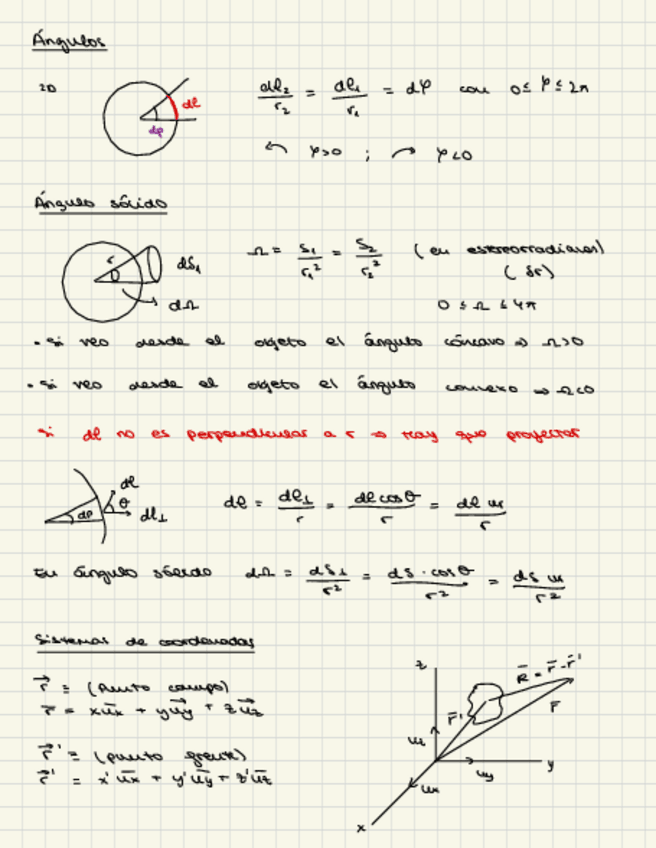 Ángulos
2D
dl
dφ
dl₂/r₂ = dl₁/r₁ = dφ con 0 ≤ φ ≤ 2π
φ>0 ; φ<0
Ángulo sólido
r
Ω
dS₁
dΩ
Ω = S₁/r₁² = S₂/r₂² (en estereorradianes)
(sr)
0 ≤ Ω ≤ 4π
• Si veo desde el objeto el ángulo cóncavo ⇒ Ω>0
• Si veo desde el objeto el ángulo convexo ⇒ Ω<0
Si dl no es perpendicular a r ⇒ hay que proyectar
dl
θ
dφ
dl⊥
dl = dl⊥/r = dl cosθ/r = dl ur/r
En ángulo sólido dΩ = dS⊥/r² = dS · cosθ/r² = dS ur/r²
Sistemas de coordenadas
r⃗ ≡ (punto campo)
r̄ = xu⃗x + yu⃗y + zu⃗z
r⃗' ≡ (punto fuente)
r⃗' = x'ūx + y'ūy + z'ūz
z
R̄ = r̄ - r̄'
r̄'
r̄
uz
uy
y
ux
x